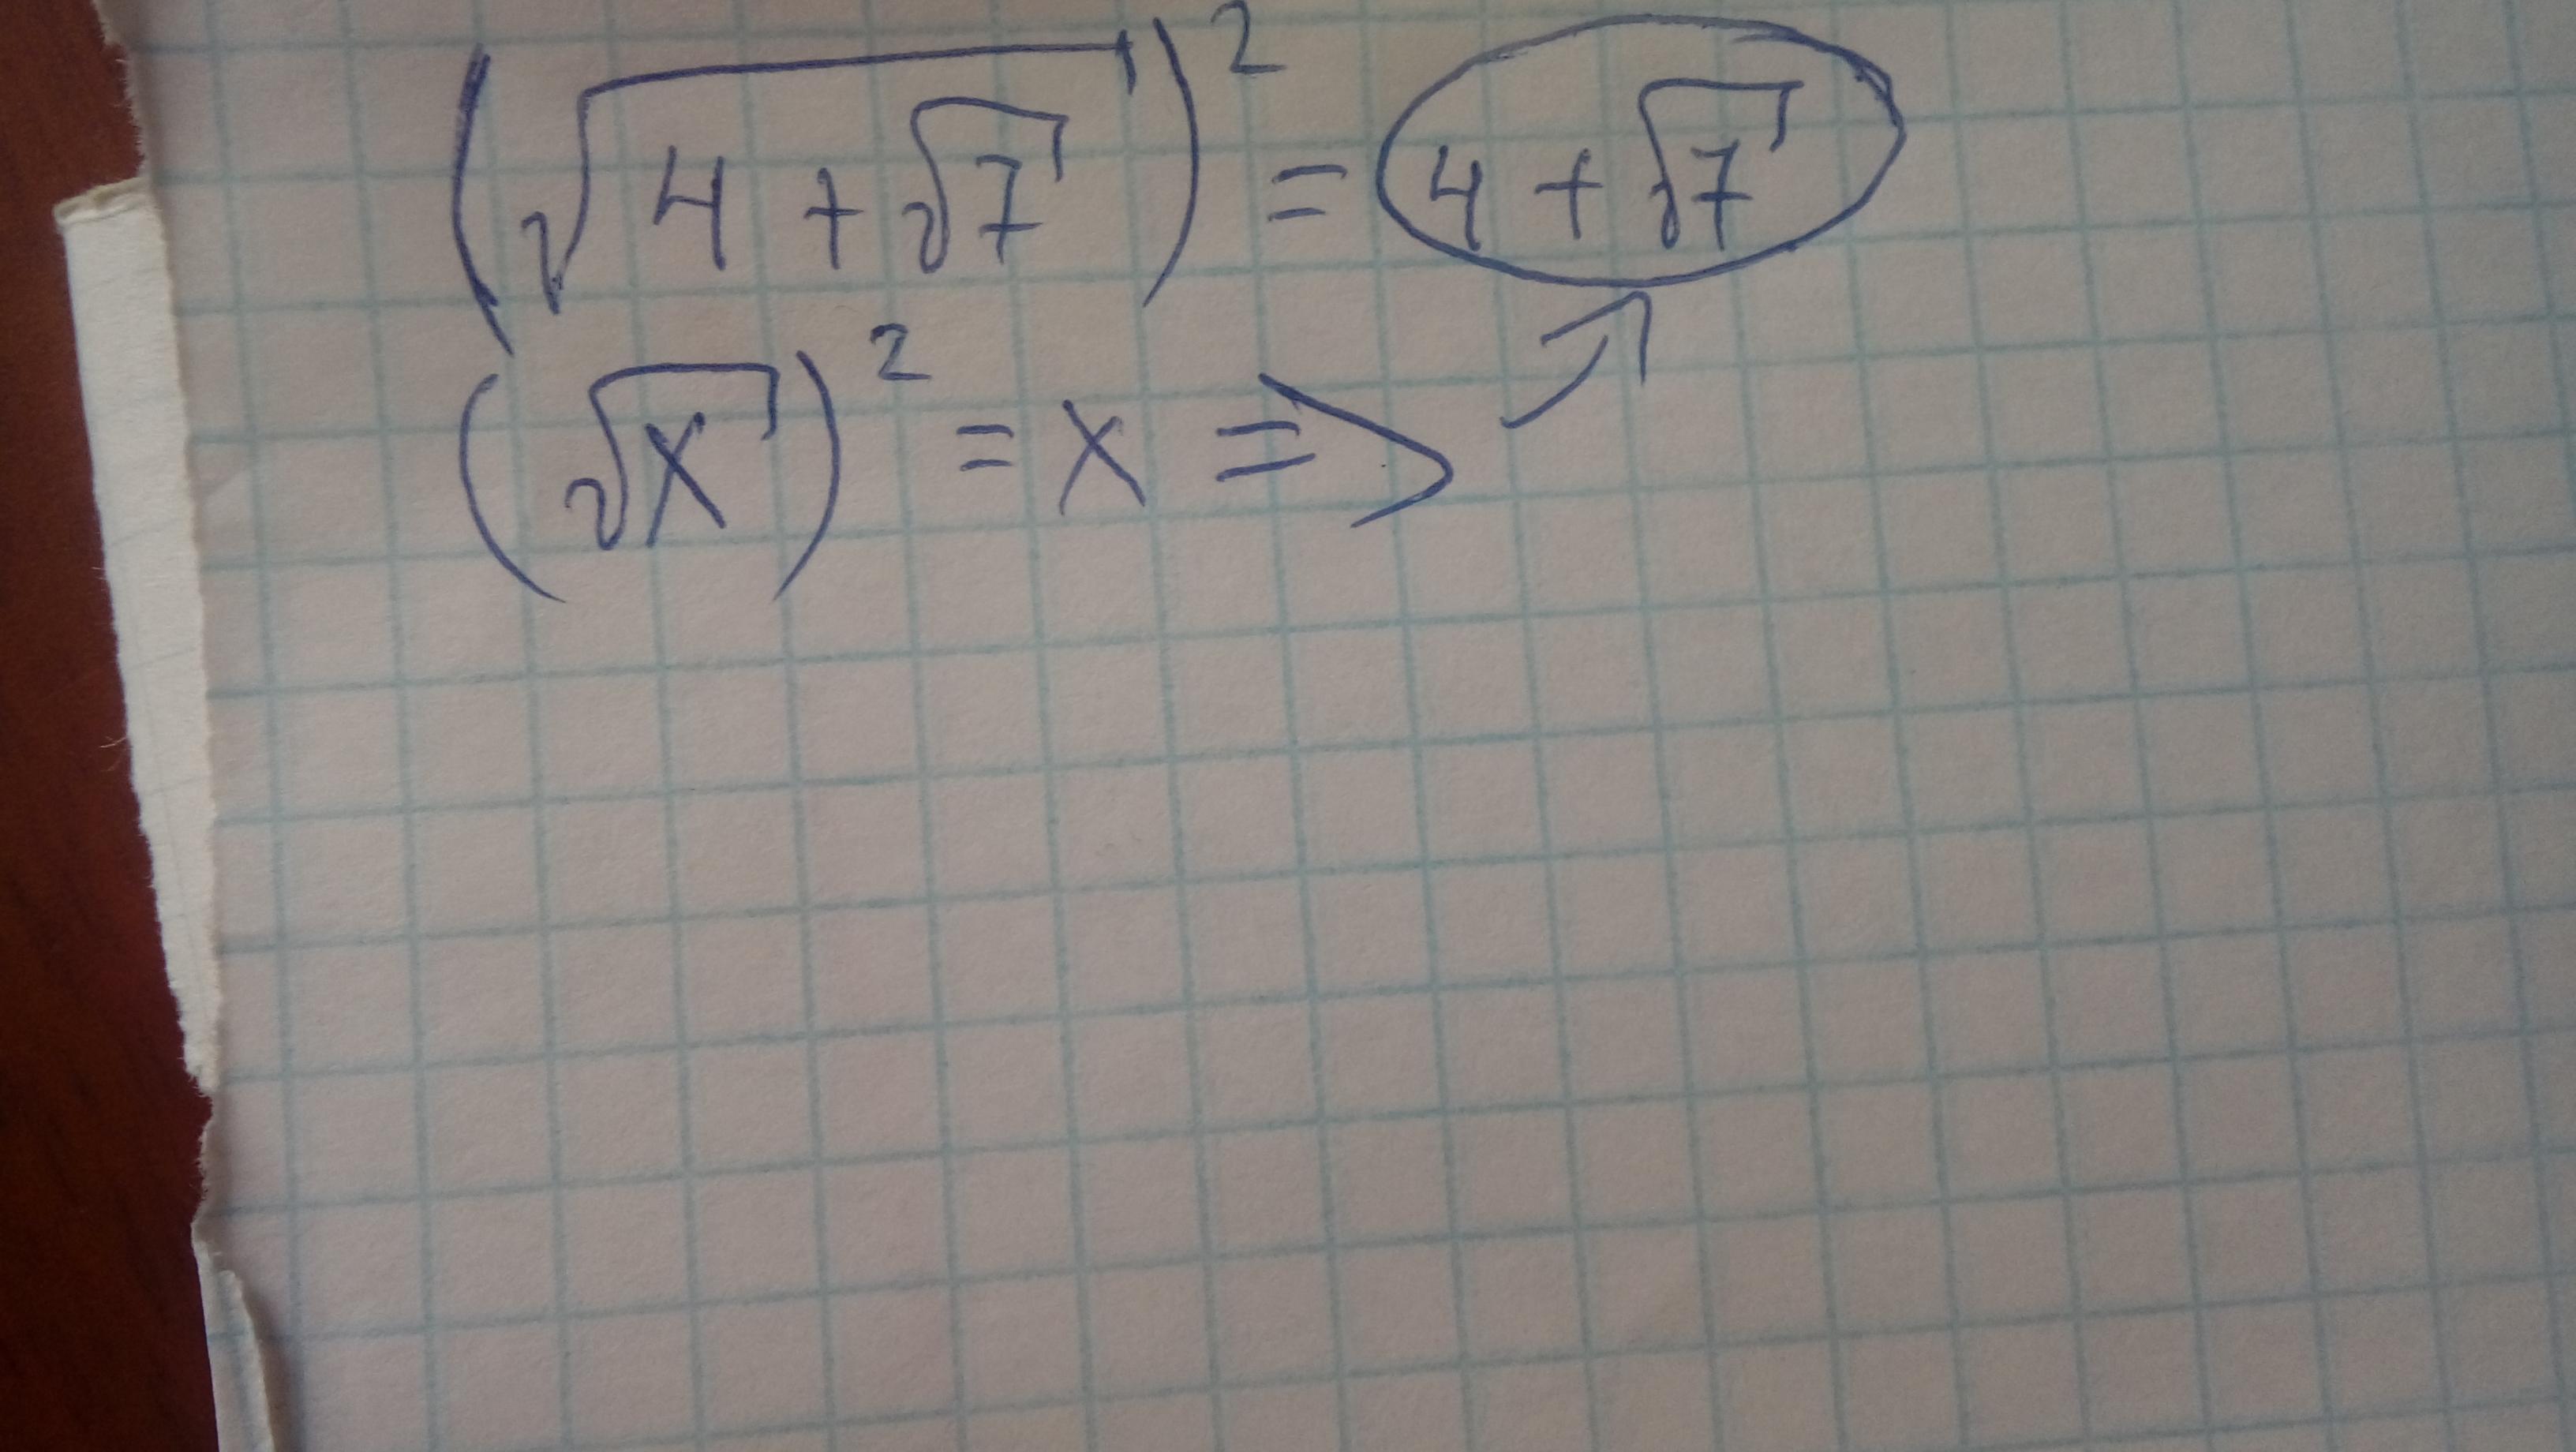 (√(4 + √7))² = 4 + √7
(√x)² = x => ↗